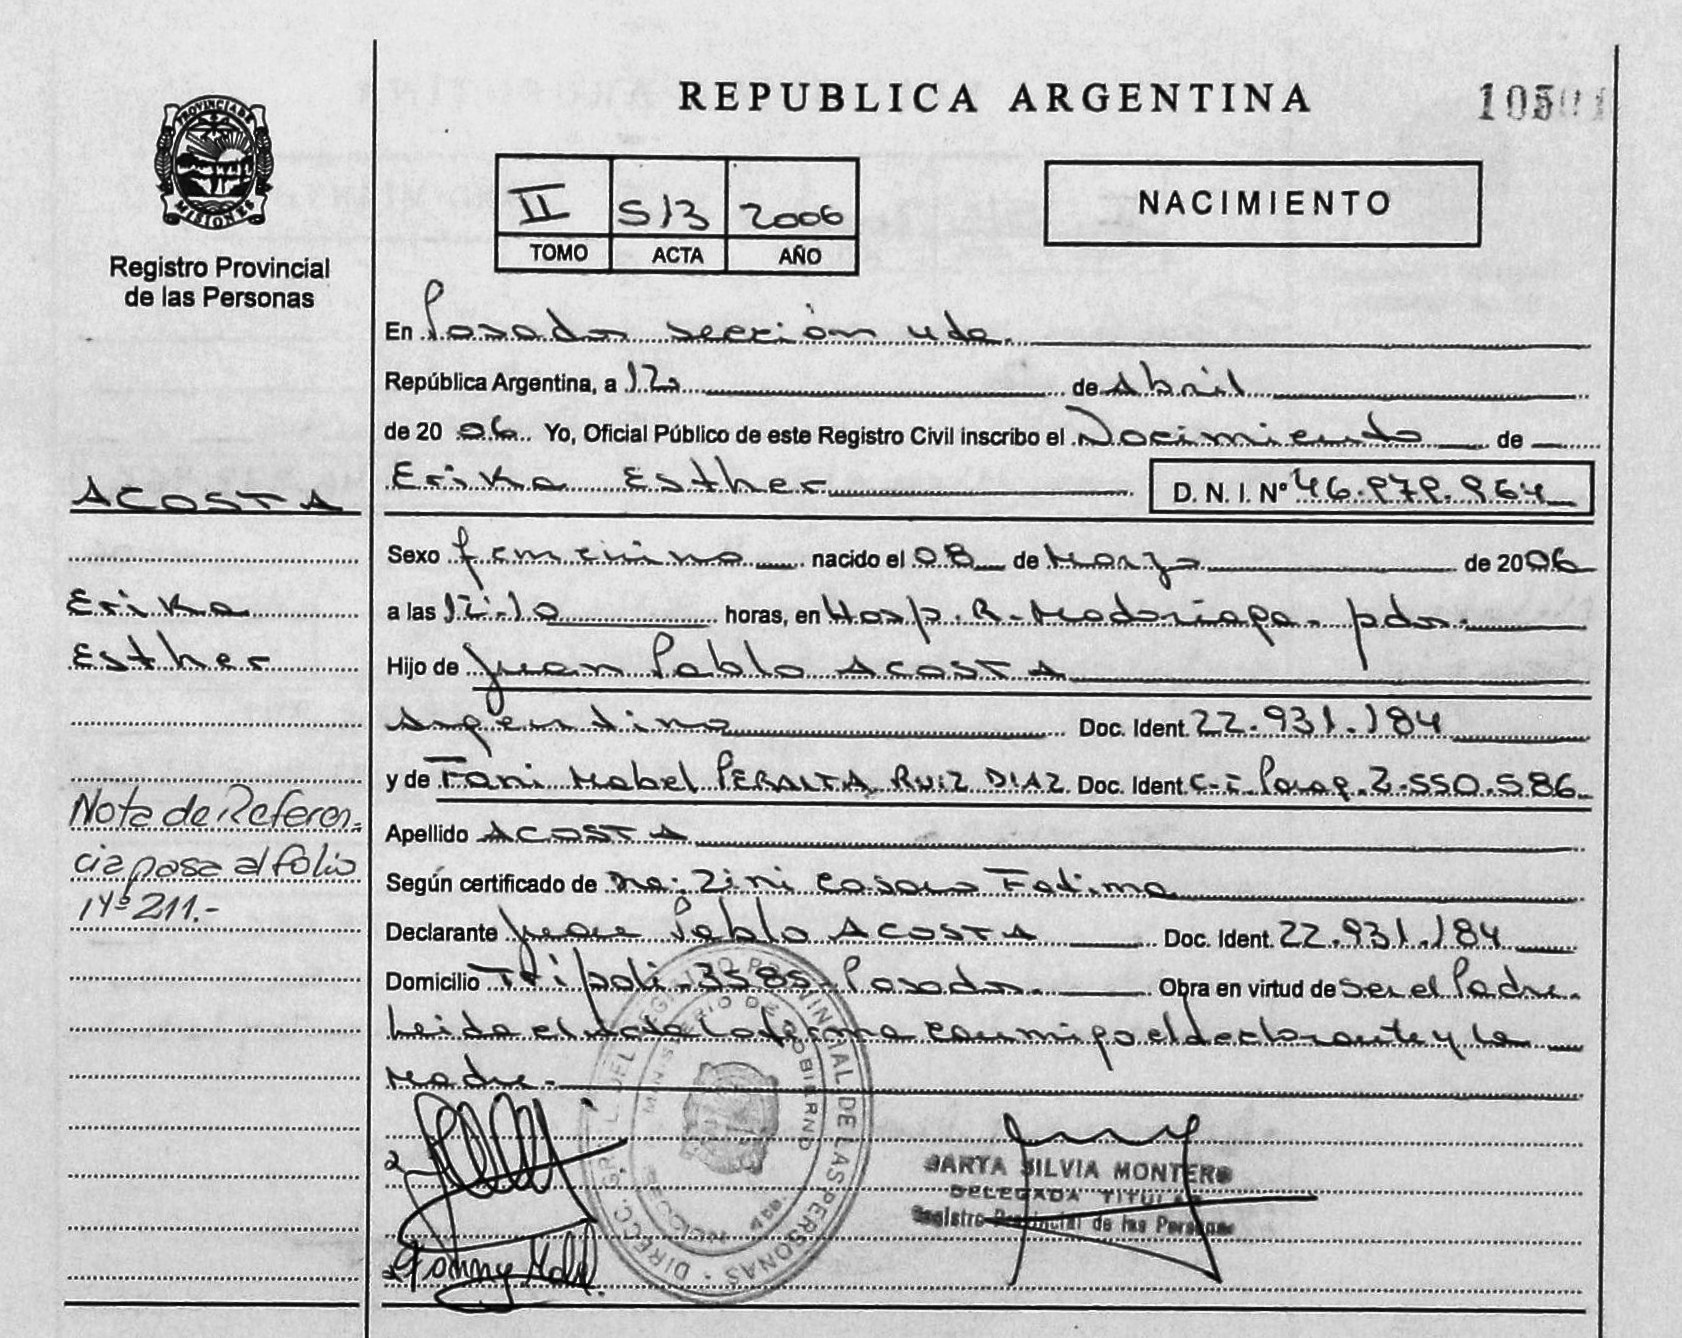 REPUBLICA ARGENTINA
PROVINCIA DE
MISIONES
Registro Provincial
de las Personas
II 513 2006
TOMO ACTA AÑO
NACIMIENTO
En Posadas sección 4ta.
República Argentina, a 12 de Abril
de 2006 Yo, Oficial Público de este Registro Civil inscribo el Nacimiento de
Erika Esther
D. N. I. Nº 46.
ACOSTA
Erika
Esther
Sexo femenino nacido el 08 de Marzo de 2006
a las 12:10 horas, en Hosp. R. Madariaga. pdas.
Hijo de Juan Pablo ACOSTA
argentino Doc. Ident. 22.931.184
y de Fani Mabel PERALTA RUIZ DIAZ Doc. Ident. C.I. Parag. 2.550.586
Apellido ACOSTA
Según certificado de Zini Fatima
Declarante Juan Pablo ACOSTA Doc. Ident. 22.931.184
Domicilio Tripoli 3585 Posadas. Obra en virtud de ser el Padre.
Leida el acta la firma conmigo el declarante y la
Madre.
Nota de Referen-
cia pasa al folio
Nº 211.-
SILVIA MONTERO
DELEGADA TITULAR
Registro Provincial de las Personas
DIRECC. GRAL. DEL REGISTRO PROVINCIAL DE LAS PERSONAS
MINISTERIO DE GOBIERNO